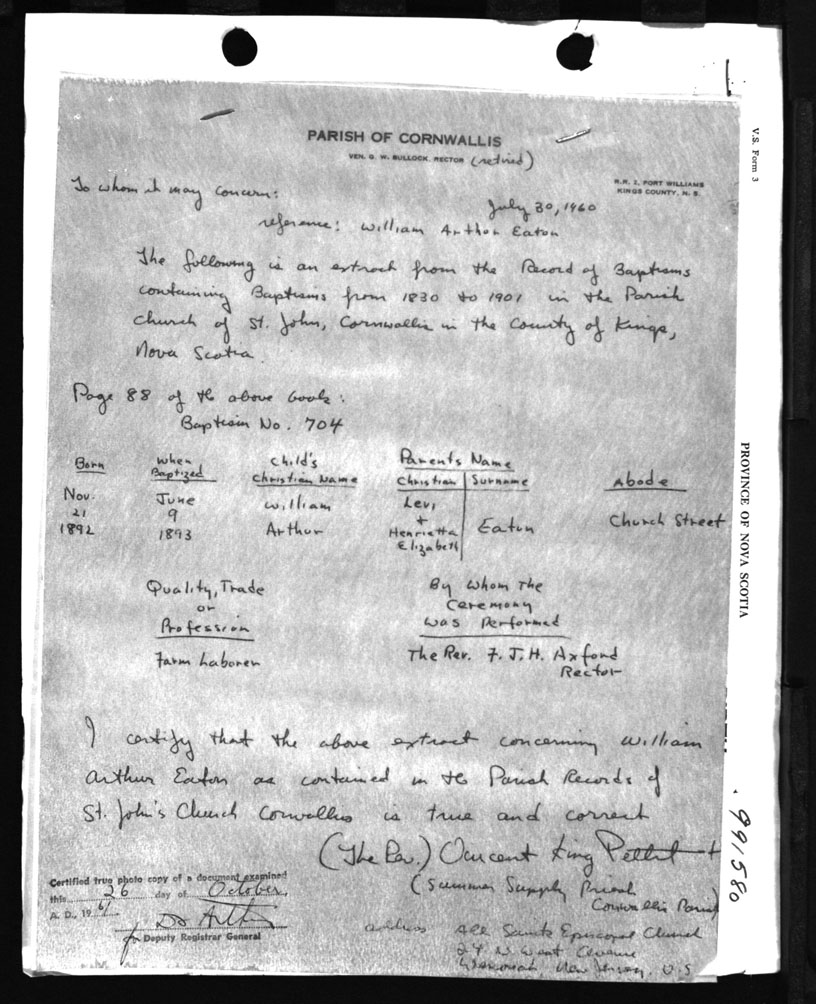 PARISH OF CORNWALLIS
VEN. G. W. BULLOCK, RECTOR (retired)
R.R. 2, PORT WILLIAMS
KINGS COUNTY, N. S.
To whom it may concern:
July 30, 1960
reference: William Arthur Eaton
The following is an extract from the Record of Baptisms
containing Baptisms from 1830 to 1901 in the Parish
Church of St. John, Cornwallis in the County of Kings,
Nova Scotia.
Page 88 of the above book:
Baptism No. 704
Born
When Baptized
Child's Christian Name
Parents Name
Christian Surname
Abode
Nov. 21 1892
June 9 1893
William Arthur
Levi + Henrietta Elizabeth
Eaton
Church Street
Quality, Trade
or
Profession
Farm Laborer
By Whom The
Ceremony
was Performed
The Rev. F. J. H. Axford
Rector
I certify that the above extract concerning William
Arthur Eaton as contained in the Parish Records of
St. John's Church Cornwallis is true and correct
(The Rev.) Vincent King Pettit +
(Summer Supply Priest
Cornwallis Parish)
address All Saints Episcopal Church
24 N. West Avenue
New Jersey, U.S
Certified true photo copy of a document examined
this 26 day of October,
A. D., 1961
for Deputy Registrar General
V.S. Form 3
PROVINCE OF NOVA SCOTIA
991580